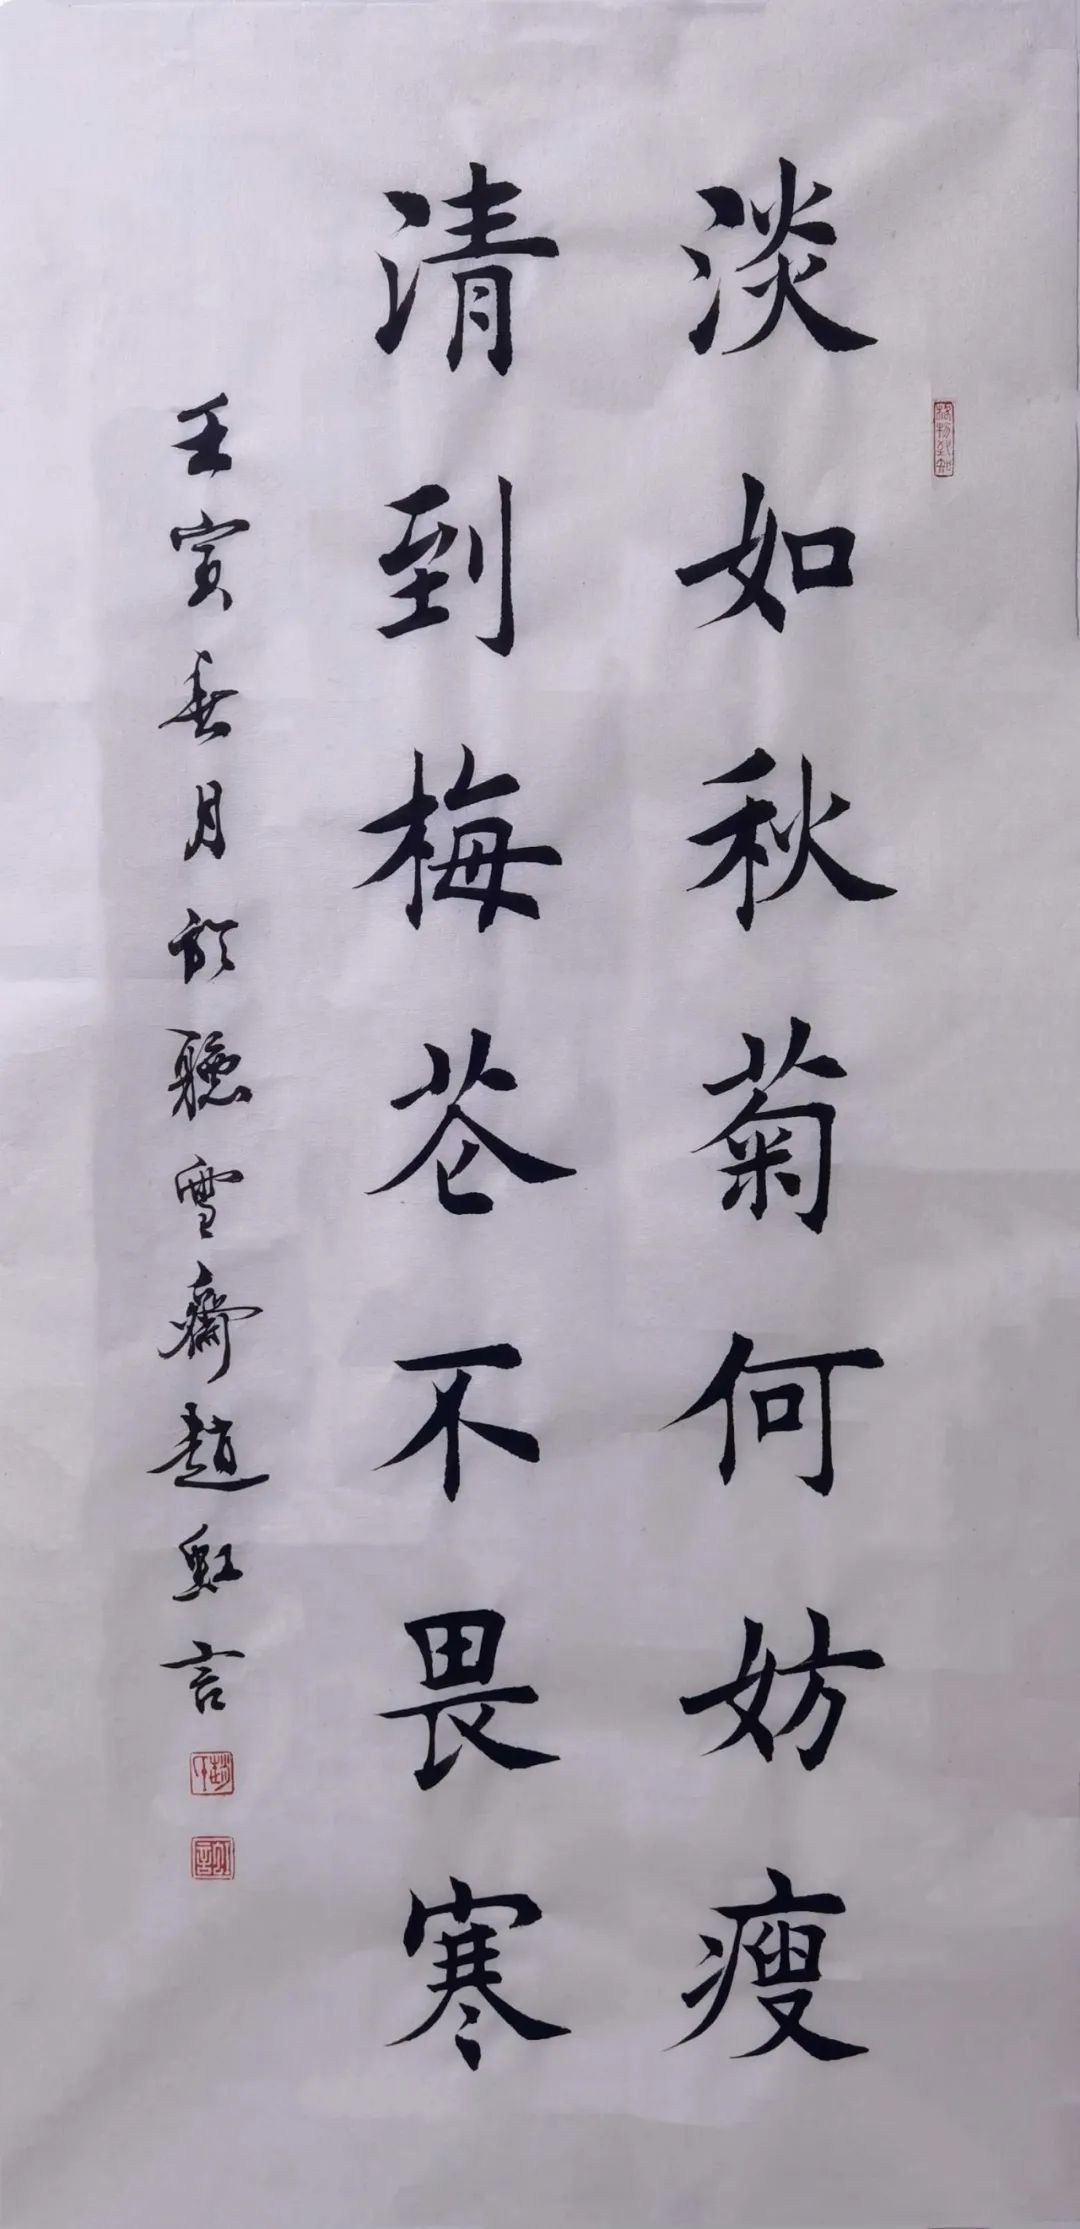 格物致知
淡如秋菊何妨瘦
清到梅花不畏寒
壬寅春月於聽雪齋趙虹言
虹言